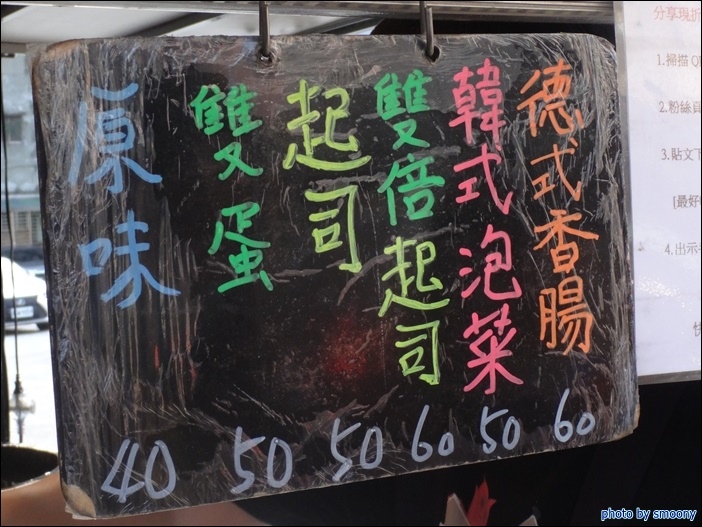 德式香腸
韓式泡菜
雙倍起司
起司
雙蛋
原味
40 50 50 60 50 60
分享現折
1.掃描Q
2.粉絲頁
3.貼文下
[最好
4.出示
快
photo by smoony